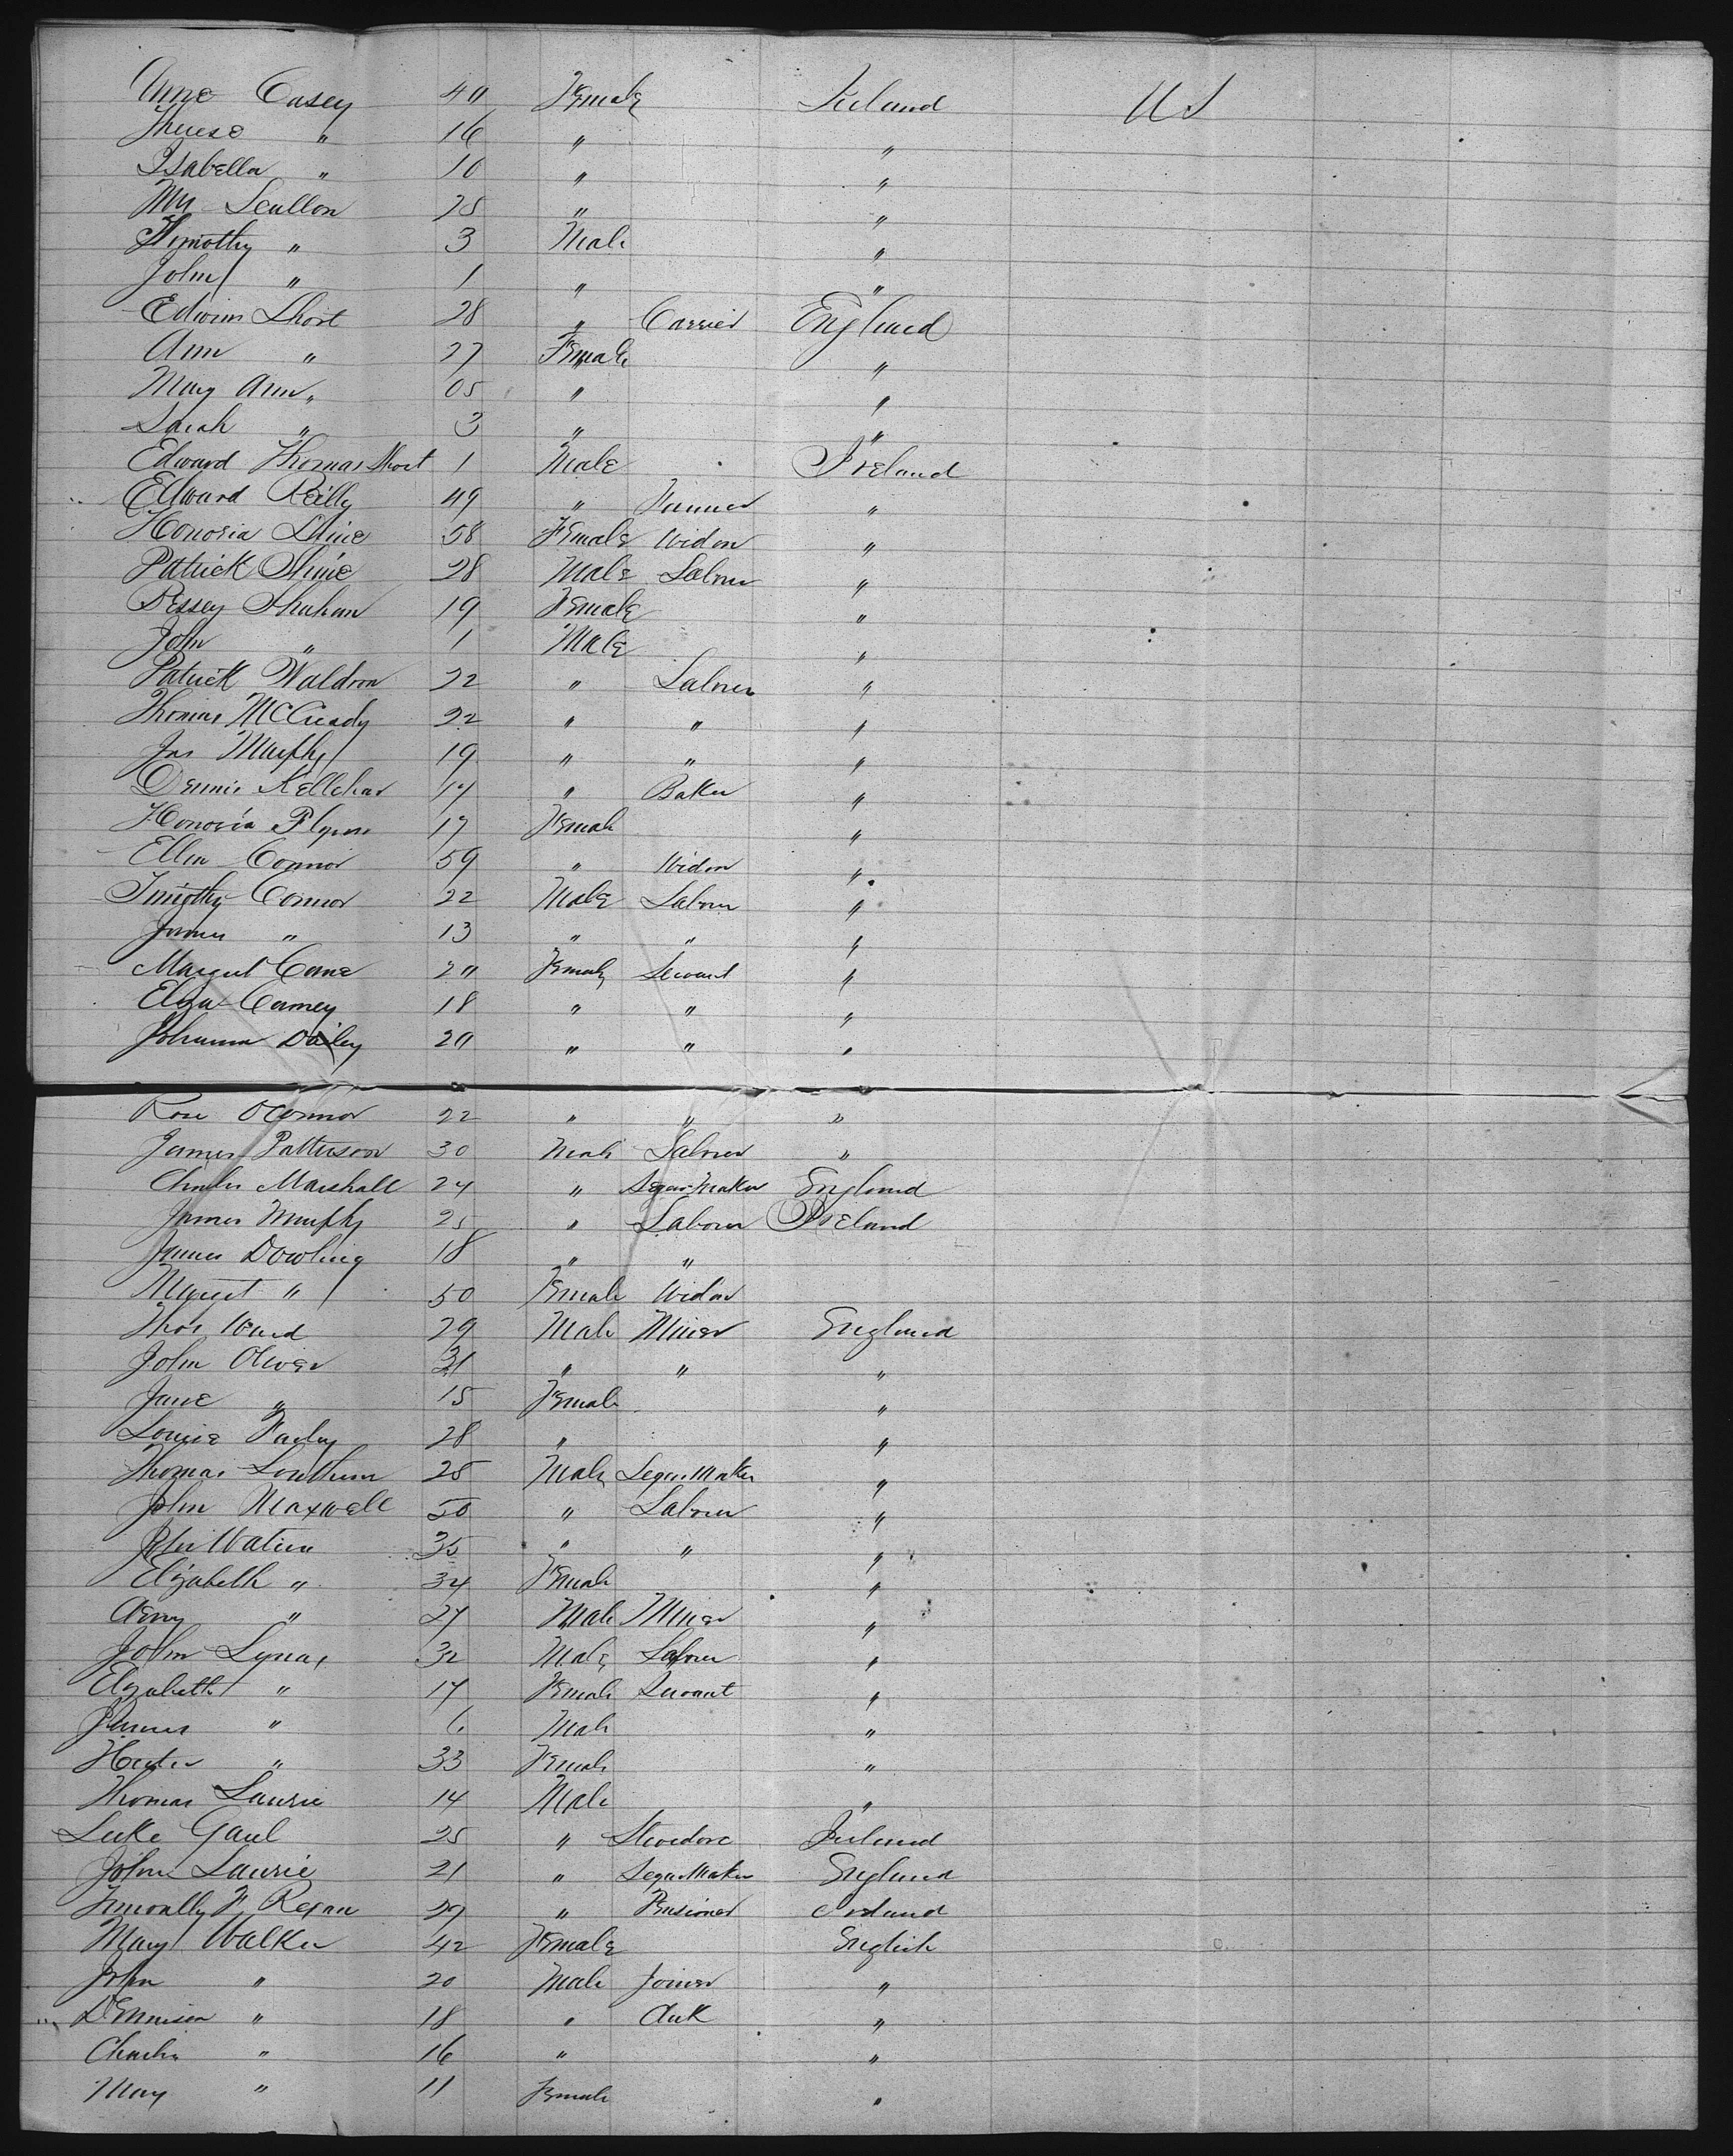 Anne Casey 40 Female Ireland US
Therese " 16 " "
Isabella " 10 " "
Mrs Scullon 25 " "
Timothy " 3 Male "
John " 1 " "
Edwin Short 28 " England
Ann " 27 Female "
Mary Ann " 05 " "
Sarah " 3 " "
Edward Thomas Short 1 Male Ireland
Edward Reilly 49 " "
Honoria 58 Female Widow "
Patrick 28 Male Labrer "
Bessey 19 Female "
John " 1 Male "
Patrick Waldron 22 " Labrer "
Thomas McCready 22 " " "
Jas Murphy 19 " " "
Dennis Kellehar " Baker "
Honoria Flynn 17 Female "
Ellen Connor 59 " Widow "
Timothy Connor 22 Male Labrer "
James " 13 " " "
Margret Cane 20 Female Servant "
Eliza 18 " " "
Johanna Dailey 20 " " "
Rose OConnor 22 " " "
James Patterson 30 Male Labrer "
Charles Marshall 24 " Segar Maker England
James Murphy 25 " Labrer Ireland
James Dowling 18 " "
Margret " 50 Female Widow
Thos Ward 29 Male Miner England
John Oliver 31 " " "
Jane " 15 Female "
Louisa 28 " "
Thomas 25 Male Segar Maker "
John Maxwell 50 " Labrer "
35 " " "
Elizabeth " 34 Female "
" Male Miner "
John 32 Male Labrer "
Elizabeth " Female Servant "
James " 6 Male "
" 33 Female "
Thomas Laurie 14 Male "
Luke Gaul 25 " Stevedore Ireland
John Laurie 21 " Segar Maker England
Regan 29 " Pensioner Ireland
Mary Walker 42 Female English
John " 20 Male Joiner "
Dennison " 18 " Clerk "
Charles " 16 " "
May " 11 Female "